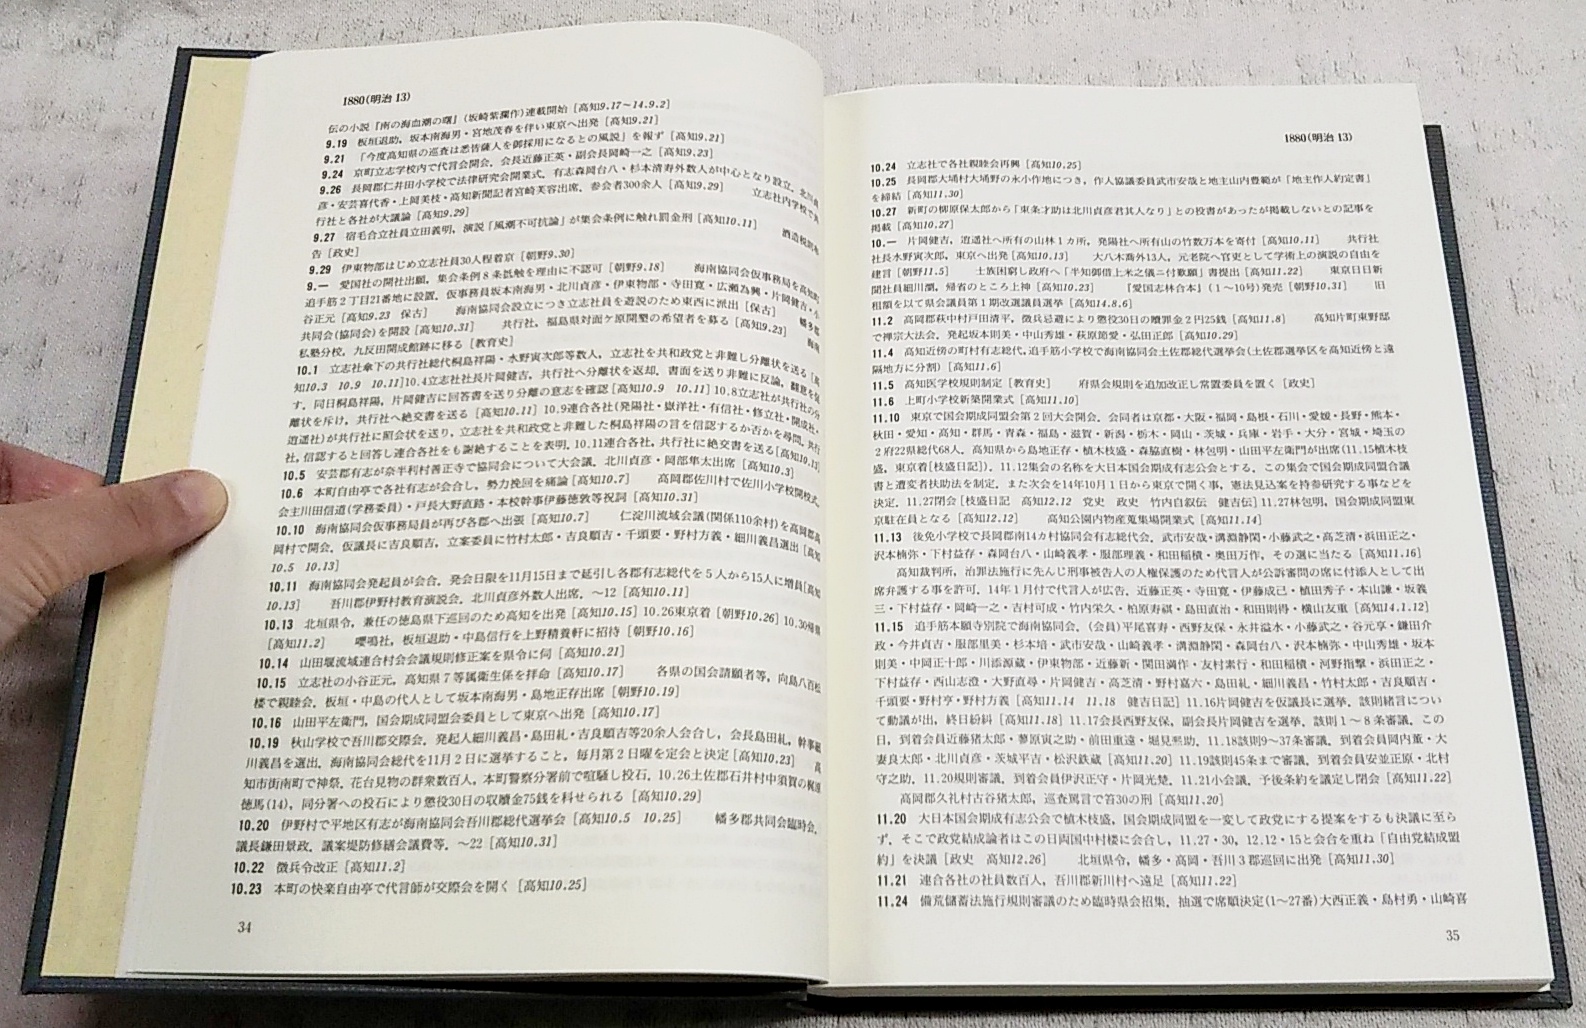 1880(明治 13)
伝の小説『南の海血潮の曙』(坂崎紫瀾作)連載開始 [高知9.17〜14.9.2]
9.19 板垣退助，坂本南海男・宮地茂春を伴い東京へ出発 [高知9.21]
9.21 「今度高知県の巡査は悉皆薩人を御採用になるとの風説」を報ず [高知9.21]
9.24 京町立志学校内で代言会開会．会長近藤正英・副会長岡崎一之 [高知9.23]
9.26 長岡郡仁井田小学校で法律研究会開業式．有志森岡台八・杉本清寿外数人が中心となり設立．北川貞
彦・安芸喜代香・上岡美枝・高知新聞記者宮崎芙容出席．参会者300余人 [高知9.29] 立志社内学校で共
行社と各社が大議論 [高知9.29]
9.27 宿毛合立社員立田義明，演説「風潮不可抗論」が集会条例に触れ罰金刑 [高知10.11] 酒造税則
告 [政史]
9.29 伊東物部はじめ立志社員30人程着京 [朝野9.30]
9.— 愛国社の開社出願，集会条例8条抵触を理由に不認可 [朝野9.18] 海南協同会仮事務局を高知町
追手筋2丁目21番地に設置．仮事務員坂本南海男・北川貞彦・伊東物部・寺田寛・広瀬為興・片岡健吉・小
谷正元 [高知9.23 保古] 海南協同会設立につき立志社員を遊説のため東西に派出 [保古] 幡多郡
共同会(協同会)を開設 [高知10.31] 共行社，福島県対面ケ原開墾の希望者を募る [高知9.23] 海南
私塾分校，九反田開成館跡に移る [教育史]
10.1 立志社傘下の共行社総代桐島祥陽・水野寅次郎等数人，立志社を共和政党と非難し分離状を送る [高
知10.3 10.9 10.11] 10.4立志社社長片岡健吉，共行社へ分離状を返却．書面を送り非難に反論，翻意を促
す．同日桐島祥陽，片岡健吉に回答書を送り分離の意志を確認 [高知10.9 10.11] 10.8立志社が共行社の分
離状を斥け，共行社へ絶交書を送る [高知10.11] 10.9連合各社(発陽社・嶽洋社・有信社・修立社・開成社・
逍遥社)が共行社に照会状を送り，立志社を共和政党と非難した桐島祥陽の言を信認するか否かを尋問．共行
社，信認すると回答し連合各社をも謝絶することを表明．10.11連合各社，共行社に絶交書を送る [高知10.13]
10.5 安芸郡有志が奈半利村善正寺で協同会について大会議．北川貞彦・岡部隼太出席 [高知10.3]
10.6 本町自由亭で各社有志が会合し，勢力挽回を痛論 [高知10.7] 高岡郡佐川村で佐川小学校開校式．
会主川田信道(学務委員)・戸長大野直路・本校幹事伊藤徳敦等祝詞 [高知10.31]
10.10 海南協同会仮事務局員が再び各郡へ出張 [高知10.7] 仁淀川流域会議(関係110余村)を高岡郡高
岡村で開会．仮議長に吉良順吉，立案委員に竹村太郎・吉良順吉・千頭要・野村方義・細川義昌選出 [高知
10.5 10.13]
10.11 海南協同会発起員が会合．発会日限を11月15日まで延引し各郡有志総代を5人から15人に増員 [高知
10.13] 吾川郡伊野村教育演説会．北川貞彦外数人出席．〜12 [高知10.11]
10.13 北垣県令，兼任の徳島県下巡回のため高知を出発 [高知10.15] 10.26東京着 [朝野10.26] 10.30帰県
[高知11.2] 嚶鳴社，板垣退助・中島信行を上野精養軒に招待 [朝野10.16]
10.14 山田堰流域連合村会会議規則修正案を県令に伺 [高知10.21]
10.15 立志社の小谷正元，高知県7等属衛生係を拝命 [高知10.17] 各県の国会請願者等，向島八百松
楼で親睦会．板垣・中島の代人として坂本南海男・島地正存出席 [朝野10.19]
10.16 山田平左衛門，国会期成同盟会委員として東京へ出発 [高知10.17]
10.19 秋山学校で吾川郡交際会．発起人細川義昌・島田糺・吉良順吉等20余人会合し，会長島田糺，幹事細
川義昌を選出．海南協同会総代を11月2日に選挙すること，毎月第2日曜を定会と決定 [高知10.23] 高
知市街南町で神祭．花台見物の群衆数百人，本町警察分署前で喧騒し投石．10.26土佐郡石井村中須賀の梶浦
徳馬(14)，同分署への投石により懲役30日の収贖金75銭を科せられる [高知10.29]
10.20 伊野村で平地区有志が海南協同会吾川郡総代選挙会 [高知10.5 10.25] 幡多郡共同会臨時会．
議長鎌田景政．議案堤防修繕会議費等．〜22 [高知10.31]
10.22 徴兵令改正 [高知11.2]
10.23 本町の快楽自由亭で代言師が交際会を開く [高知10.25]
34
1880(明治 13)
10.24 立志社で各社親睦会再興 [高知10.25]
10.25 長岡郡大埇村大埇野の永小作地につき，作人協議委員武市安哉と地主山内豊範が「地主作人約定書」
を締結 [高知11.30]
10.27 新町の柳原保太郎から「東条才助は北川貞彦君其人なり」との投書があったが掲載しないとの記事を
掲載 [高知10.27]
10.— 片岡健吉，逍遥社へ所有の山林1カ所，発陽社へ所有山の竹数万本を寄付 [高知10.11] 共行社
社長水野寅次郎，東京へ出発 [高知10.13] 大八木喬外13人，元老院へ官吏として学術上の演説の自由を
建言 [朝野11.5] 士族困窮し政府へ「半知御借上米之儀ニ付歎願」書提出 [高知11.22] 東京日日新
聞社員細川瀏，帰省のところ上神 [高知10.23] 『愛国志林合本』(1〜10号)発売 [朝野10.31] 旧
租額を以て県会議員第1期改選議員選挙 [高知14.8.6]
11.2 高岡郡萩中村戸田清平，徴兵忌避により懲役30日の贖罪金2円25銭 [高知11.8] 高知片町東野邸
で禅宗大法会．発起坂本則美・中山秀雄・萩原節愛・弘田正郎 [高知10.29]
11.4 高知近傍の町村有志総代，追手筋小学校で海南協同会土佐郡総代選挙会(土佐郡選挙区を高知近傍と遠
隔地方に分割) [高知11.6]
11.5 高知医学校規則制定 [教育史] 府県会規則を追加改正し常置委員を置く [政史]
11.6 上町小学校新築開業式 [高知11.10]
11.10 東京で国会期成同盟会第2回大会開会．会同者は京都・大阪・福岡・島根・石川・愛媛・長野・熊本・
秋田・愛知・高知・群馬・青森・福島・滋賀・新潟・栃木・岡山・茨城・兵庫・岩手・大分・宮城・埼玉の
2府22県総代68人．高知県から島地正存・植木枝盛・森脇直樹・林包明・山田平左衛門が出席(11.15植木枝
盛，東京着[枝盛日記])．11.12集会の名称を大日本国会期成有志公会とする．この集会で国会期成同盟合議
書と遭変者扶助法を制定．また次会を14年10月1日から東京で開く事，憲法見込案を持参研究する事などを
決定．11.27閉会 [枝盛日記 高知12.12 党史 政史 竹内自叙伝 健吉伝] 11.27林包明，国会期成同盟東
京駐在員となる [高知12.12] 高知公園内物産蒐集場開業式 [高知11.14]
11.13 後免小学校で長岡郡南14カ村協同会有志総代会．武市安哉・溝淵静閑・小藤武之・高芝清・浜田正之・
沢本楠弥・下村益存・森岡台八・山崎義孝・服部理義・和田稲積・奥田万作，その選に当たる [高知11.16]
高知裁判所，治罪法施行に先んじ刑事被告人の人権保護のため代言人が公訴審問の席に付添人として出
席弁護する事を許可．14年1月付で代言人が広告．近藤正英・寺田寛・伊藤成己・植田秀子・本山謙・坂義
三・下村益存・岡崎一之・吉村可成・竹内栄久・柏原寿祺・島田直治・和田則得・横山友重 [高知14.1.12]
11.15 追手筋本願寺別院で海南協同会．(会員)平尾喜寿・西野友保・永井溢水・小藤武之・谷元享・鎌田介
政・今井貞吉・服部里美・杉本培・武市安哉・山崎義孝・溝淵静閑・森岡台八・沢本楠弥・中山秀雄・坂本
則美・中岡正十郎・川添源蔵・伊東物部・近藤新・関田満作・友村素行・和田稲積・河野指撃・浜田正之・
下村益存・西山志澄・大野直尋・片岡健吉・高芝清・野村嘉六・島田糺・細川義昌・竹村太郎・吉良順吉・
千頭要・野村亨・野村方義 [高知11.14 11.18 健吉日記] 11.16片岡健吉を仮議長に選挙．該則緒言につい
て動議が出，終日紛糾 [高知11.18] 11.17会長西野友保，副会長片岡健吉を選挙．該則1〜8条審議．この
日，到着会員近藤猪太郎・蓼原寅之助・前田重遠・堀見煕助．11.18該則9〜37条審議．到着会員岡内薫・大
妻良太郎・北川貞彦・茨城平吉・松沢鉄蔵 [高知11.20] 11.19該則45条まで審議．到着会員安並正原・北村
守之助．11.20規則審議．到着会員伊沢正守・片岡光楚．11.21小会議．予後条約を議定し閉会 [高知11.22]
高岡郡久礼村古谷猪太郎，巡査罵言で笞30の刑 [高知11.20]
11.20 大日本国会期成有志公会で植木枝盛，国会期成同盟を一変して政党にする提案をするも決議に至ら
ず．そこで政党結成論者はこの日両国中村楼に会合し，11.27・30，12.12・15と会合を重ね「自由党結成盟
約」を決議 [政史 高知12.26] 北垣県令，幡多・高岡・吾川3郡巡回に出発 [高知11.30]
11.21 連合各社の社員数百人，吾川郡新川村へ遠足 [高知11.22]
11.24 備荒儲蓄法施行規則審議のため臨時県会招集．抽選で席順決定(1〜27番)大西正義・島村勇・山崎喜
35